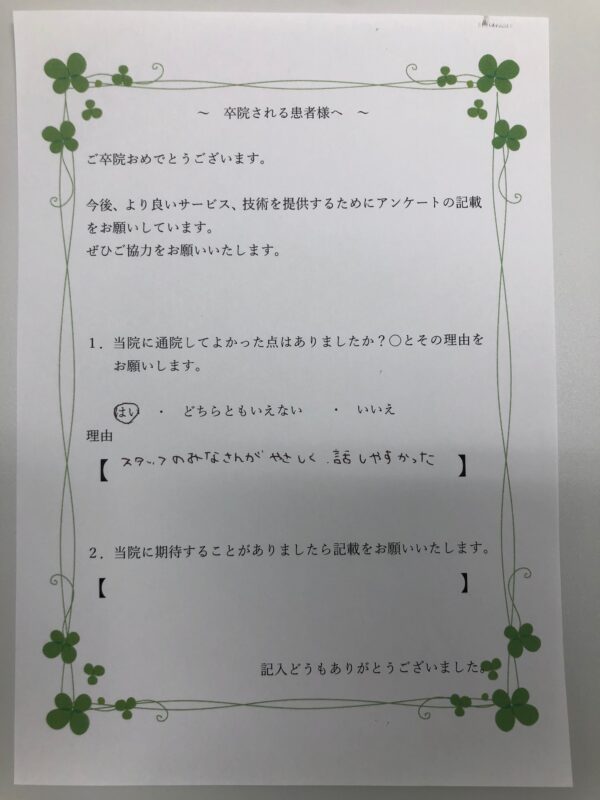 ～　卒院される患者様へ　～
ご卒院おめでとうございます。
今後、より良いサービス、技術を提供するためにアンケートの記載
をお願いしています。
ぜひご協力をお願いいたします。
１．当院に通院してよかった点はありましたか？〇とその理由を
お願いします。
はい　・　どちらともいえない　・　いいえ
理由
【 スタッフのみなさんが やさしく、話しやすかった 】
２．当院に期待することがありましたら記載をお願いいたします。
【　】
記入どうもありがとうございました。